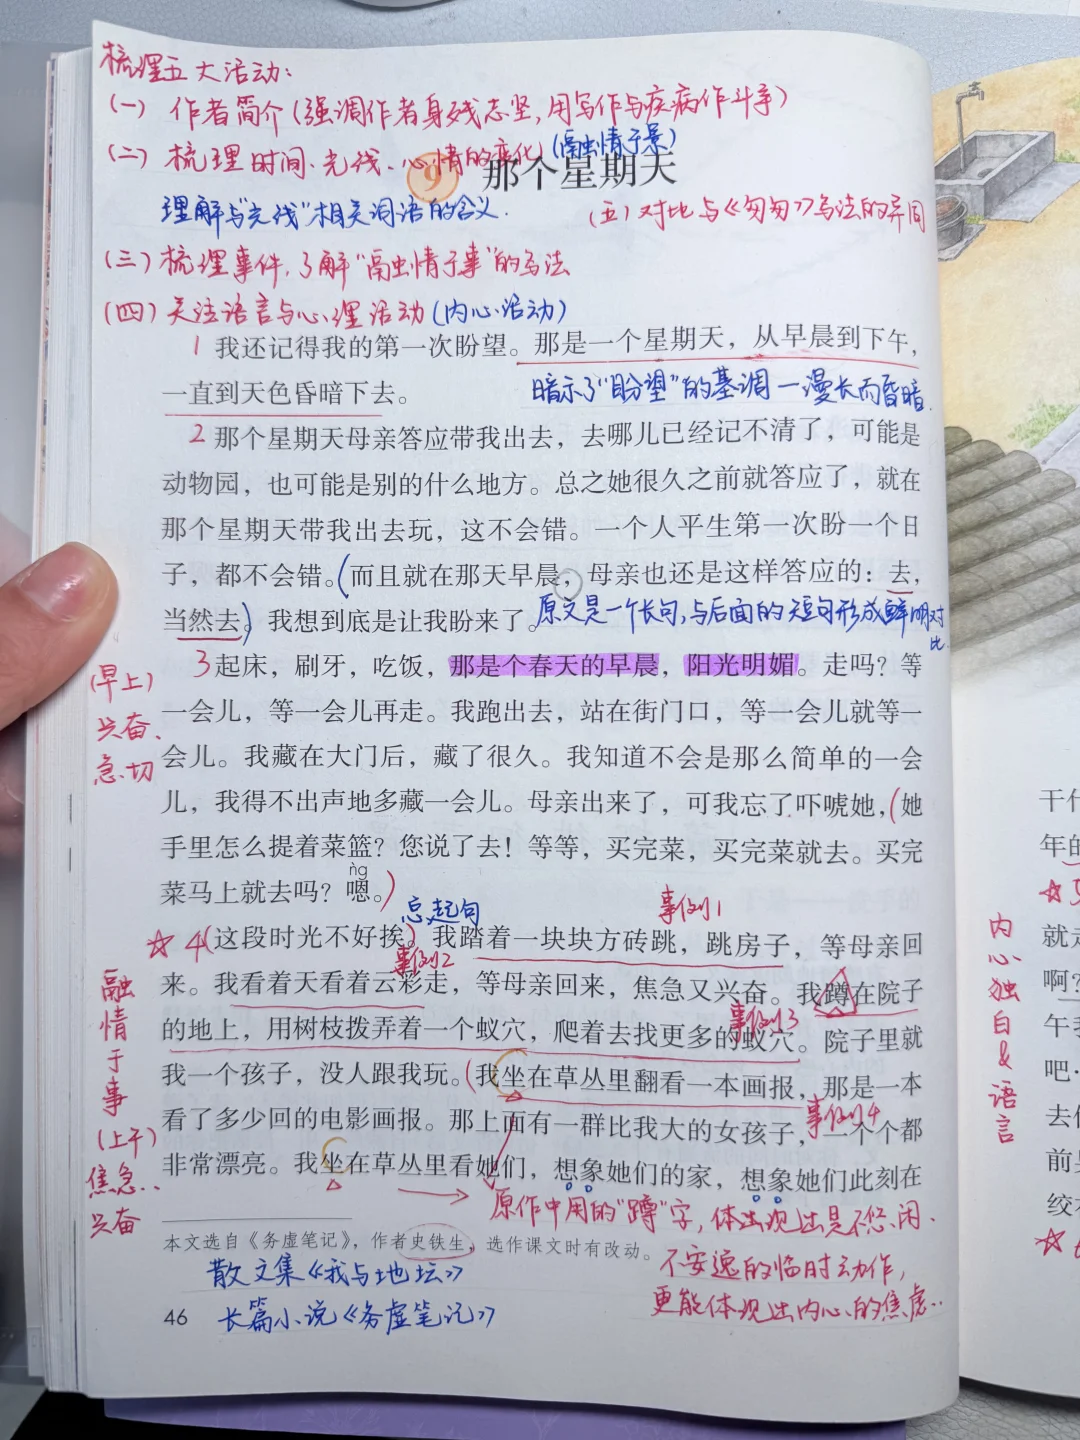 梳理五大活动：
(一) 作者简介(强调作者身残志坚，用写作与疾病作斗争)
(二) 梳理时间、光线、心情的变化(融情于景)
9 那个星期天
理解与"光线"相关词语的含义.
(五) 对比与《匆匆》写法的异同
(三) 梳理事件，了解"融情于事"的写法
(四) 关注语言与心理活动(内心活动)
1 我还记得我的第一次盼望。那是一个星期天，从早晨到下午，
一直到天色昏暗下去。
暗示了"盼望"的基调—漫长而昏暗.
2 那个星期天母亲答应带我出去，去哪儿已经记不清了，可能是
动物园，也可能是别的什么地方。总之她很久之前就答应了，就在
那个星期天带我出去玩，这不会错。一个人平生第一次盼一个日
子，都不会错。(而且就在那天早晨，母亲也还是这样答应的：去，
当然去。)我想到底是让我盼来了。
原文是一个长句，与后面的短句形成鲜明对比
3 起床，刷牙，吃饭，那是个春天的早晨，阳光明媚。走吗？等
一会儿，等一会儿再走。我跑出去，站在街门口，等一会儿就等一
会儿。我藏在大门后，藏了很久。我知道不会是那么简单的一会
儿，我得不出声地多藏一会儿。母亲出来了，可我忘了吓唬她，(她
手里怎么提着菜篮？您说了去！等等，买完菜，买完菜就去。买完
ǹg
菜马上就去吗？嗯。)
(早上)
兴奋、
急切
总起句
事例1
☆ 4(这段时光不好挨。)我踏着一块块方砖跳，跳房子，等母亲回
事例2
来。我看着天看着云彩走，等母亲回来，焦急又兴奋。我蹲在院子
事例3
的地上，用树枝拨弄着一个蚁穴，爬着去找更多的蚁穴。院子里就
我一个孩子，没人跟我玩。(我坐在草丛里翻看一本画报，那是一本
事例4
看了多少回的电影画报。那上面有一群比我大的女孩子，一个个都
非常漂亮。我坐在草丛里看她们，想象她们的家，想象她们此刻在
融
情
于
事
(上午)
焦急..
兴奋
原作中用的"蹲"字，体现出是不悠闲、
不安逸的临时动作，
更能体现出内心的焦虑..
本文选自《务虚笔记》，作者史铁生，选作课文时有改动。
散文集《我与地坛》
长篇小说《务虚笔记》
46
内
心
独
白
&
语
言
干什
年的
☆5
就走
啊？
午我
吧·
去什
前是
绞衣
☆